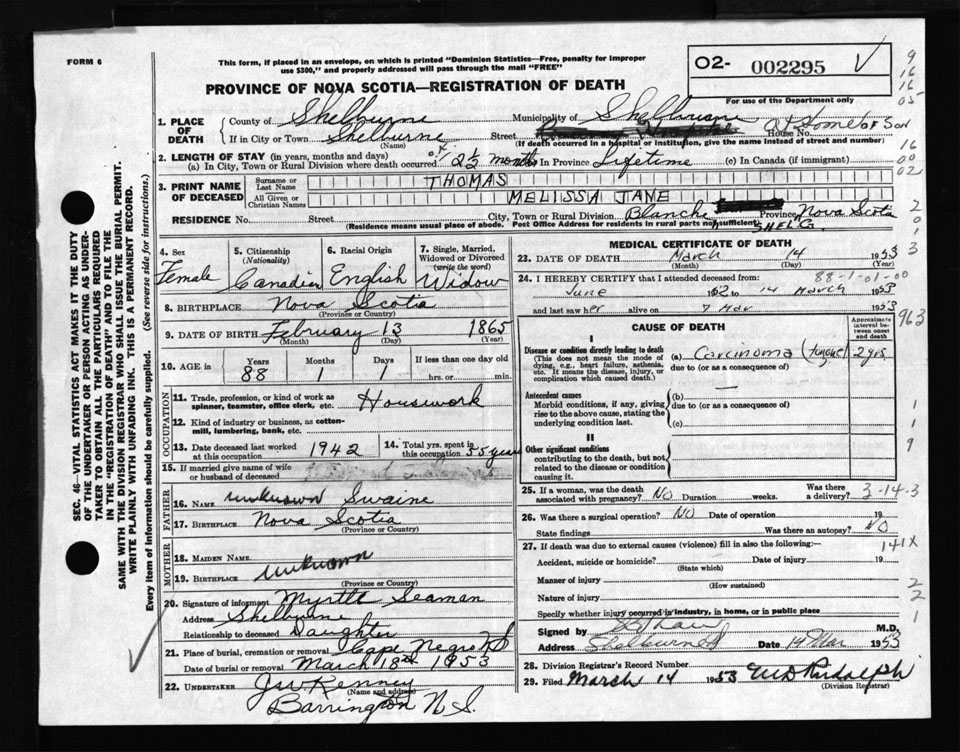 FORM 6
This form, if placed in an envelope, on which is printed "Dominion Statistics—Free, penalty for improper
use $300," and properly addressed will pass through the mail "FREE"
PROVINCE OF NOVA SCOTIA—REGISTRATION OF DEATH
O2- 002295
For use of the Department Only
9
16
16
05
1. PLACE OF DEATH
County of Shelburne Municipality of Shelburne
If in City or Town Shelburne Street House No. At Home of Son
(Name) (If death occurred in a hospital or institution, give the name instead of street and number)
16
00
02
2. LENGTH OF STAY (in years, months and days)
(a) In City, Town or Rural Division where death occurred 2½ months In Province Lifetime (c) In Canada (if immigrant)
3. PRINT NAME OF DECEASED
Surname or Last Name THOMAS
All Given or Christian Names MELISSA JANE
RESIDENCE No. Street City, Town or Rural Division Blanche Province Nova Scotia
(Residence means usual place of abode. Post Office Address for residents in rural parts not sufficient) SHEL. Co.
2
0
1
3
4. Sex
Female
5. Citizenship
(Nationality)
Canadian
6. Racial Origin
English
7. Single, Married, Widowed or Divorced
(write the word)
Widow
8. BIRTHPLACE Nova Scotia
(Province or Country)
9. DATE OF BIRTH February 13 1865
(Month) (Day) (Year)
10. AGE in Years Months Days If less than one day old
88 1 1 hrs. or min.
OCCUPATION
11. Trade, profession, or kind of work as
spinner, teamster, office clerk, etc. Housework
12. Kind of industry or business, as cotton-
mill, lumbering, bank, etc.
13. Date deceased last worked
at this occupation 1942
14. Total yrs. spent in
this occupation 55 years
15. If married give name of wife
or husband of deceased
FATHER
16. NAME unknown Swaine
17. BIRTHPLACE Nova Scotia
(Province or Country)
MOTHER
18. MAIDEN NAME
unknown
19. BIRTHPLACE
(Province or Country)
20. Signature of informant Myrtle Seaman
Address Shelburne
Relationship to deceased Daughter
21. Place of burial, cremation or removal Cape Negro N.S
Date of burial or removal March 18th 1953
22. UNDERTAKER J W Kenney
(Name and address)
Barrington N.S.
MEDICAL CERTIFICATE OF DEATH
23. DATE OF DEATH March 14 1953
(Month) (Day) (Year)
24. I HEREBY CERTIFY that I attended deceased from: 88-1-01-00
June 1952 to 14 March 1953
and last saw her alive on 7 Mar 1953
CAUSE OF DEATH
Approximate interval between onset and death
963
I
Disease or condition directly leading to death
(This does not mean the mode of
dying, e.g., heart failure, asthenia,
etc. It means the disease, injury, or
complication which caused death.
(a) Carcinoma (tongue) 2 yrs.
due to (or as a consequence of)
Antecedent causes
Morbid conditions, if any, giving
rise to the above cause, stating the
underlying condition last.
(b)
due to (or as a consequence of)
(c)
II
Other significant conditions
contributing to the death, but not
related to the disease or condition
causing it.
1
1
9
25. If a woman, was the death
associated with pregnancy? No Duration weeks. Was there
a delivery? 3-14-3
26. Was there a surgical operation? No Date of operation 19
State findings Was there an autopsy? No
27. If death was due to external causes (violence) fill in also the following:— 141X
Accident, suicide or homicide? Date of injury 19
(State which)
Manner of injury
(How sustained)
Nature of injury
Specify whether injury occurred in industry, in home, or in public place
2
2
1
Signed by M.D.
Address Shelburne N.S. Date 14 Mar 1953
28. Division Registrar's Record Number
29. Filed March 14 1953
(Division Registrar)
SEC. 46—VITAL STATISTICS ACT MAKES IT THE DUTY
OF THE UNDERTAKER OR PERSON ACTING AS UNDER-
TAKER TO OBTAIN ALL THE PARTICULARS REQUIRED
IN THE "REGISTRATION OF DEATH" AND TO FILE THE
SAME WITH THE DIVISION REGISTRAR WHO SHALL ISSUE THE BURIAL PERMIT.
WRITE PLAINLY WITH UNFADING INK. THIS IS A PERMANENT RECORD.
Every item of information should be carefully supplied. (See reverse side for instructions.)